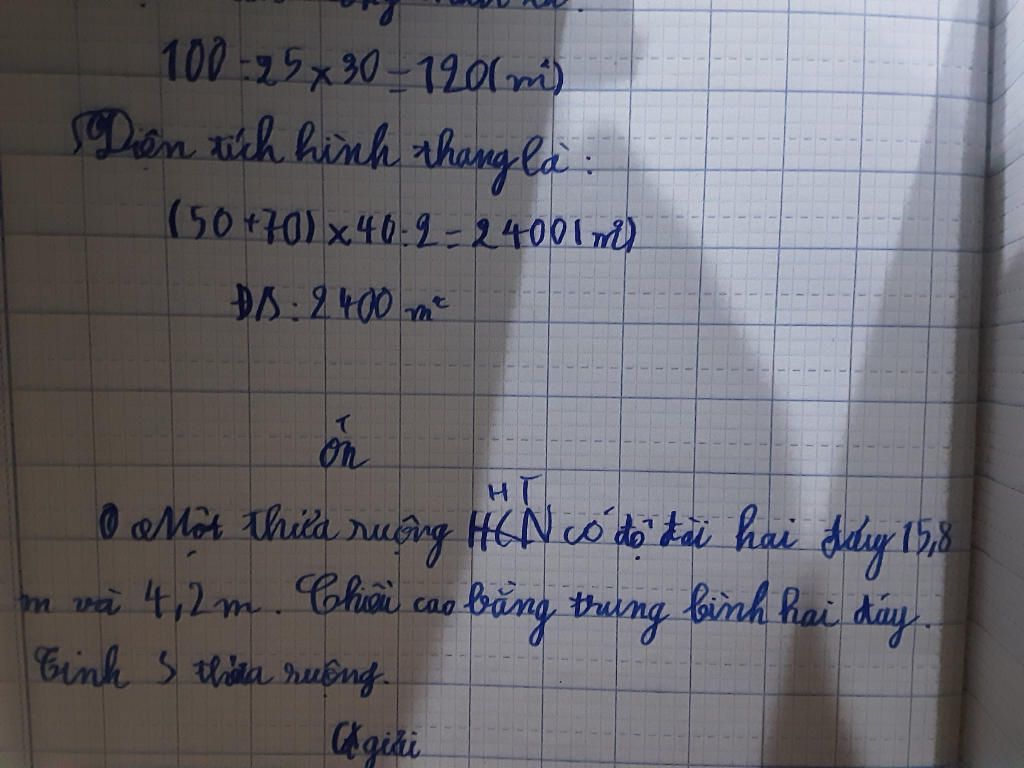 100 : 25 x 30 = 120 (m²)
Diện tích hình thang là :
(50 + 70) x 40 : 2 = 2400 (m²)
ĐS : 2400 m²
Ôn
H T
Một thửa ruộng HCN có độ dài hai đáy 15,8
m và 4,2 m. Chiều cao bằng trung bình hai đáy.
Tính S thửa ruộng.
giải